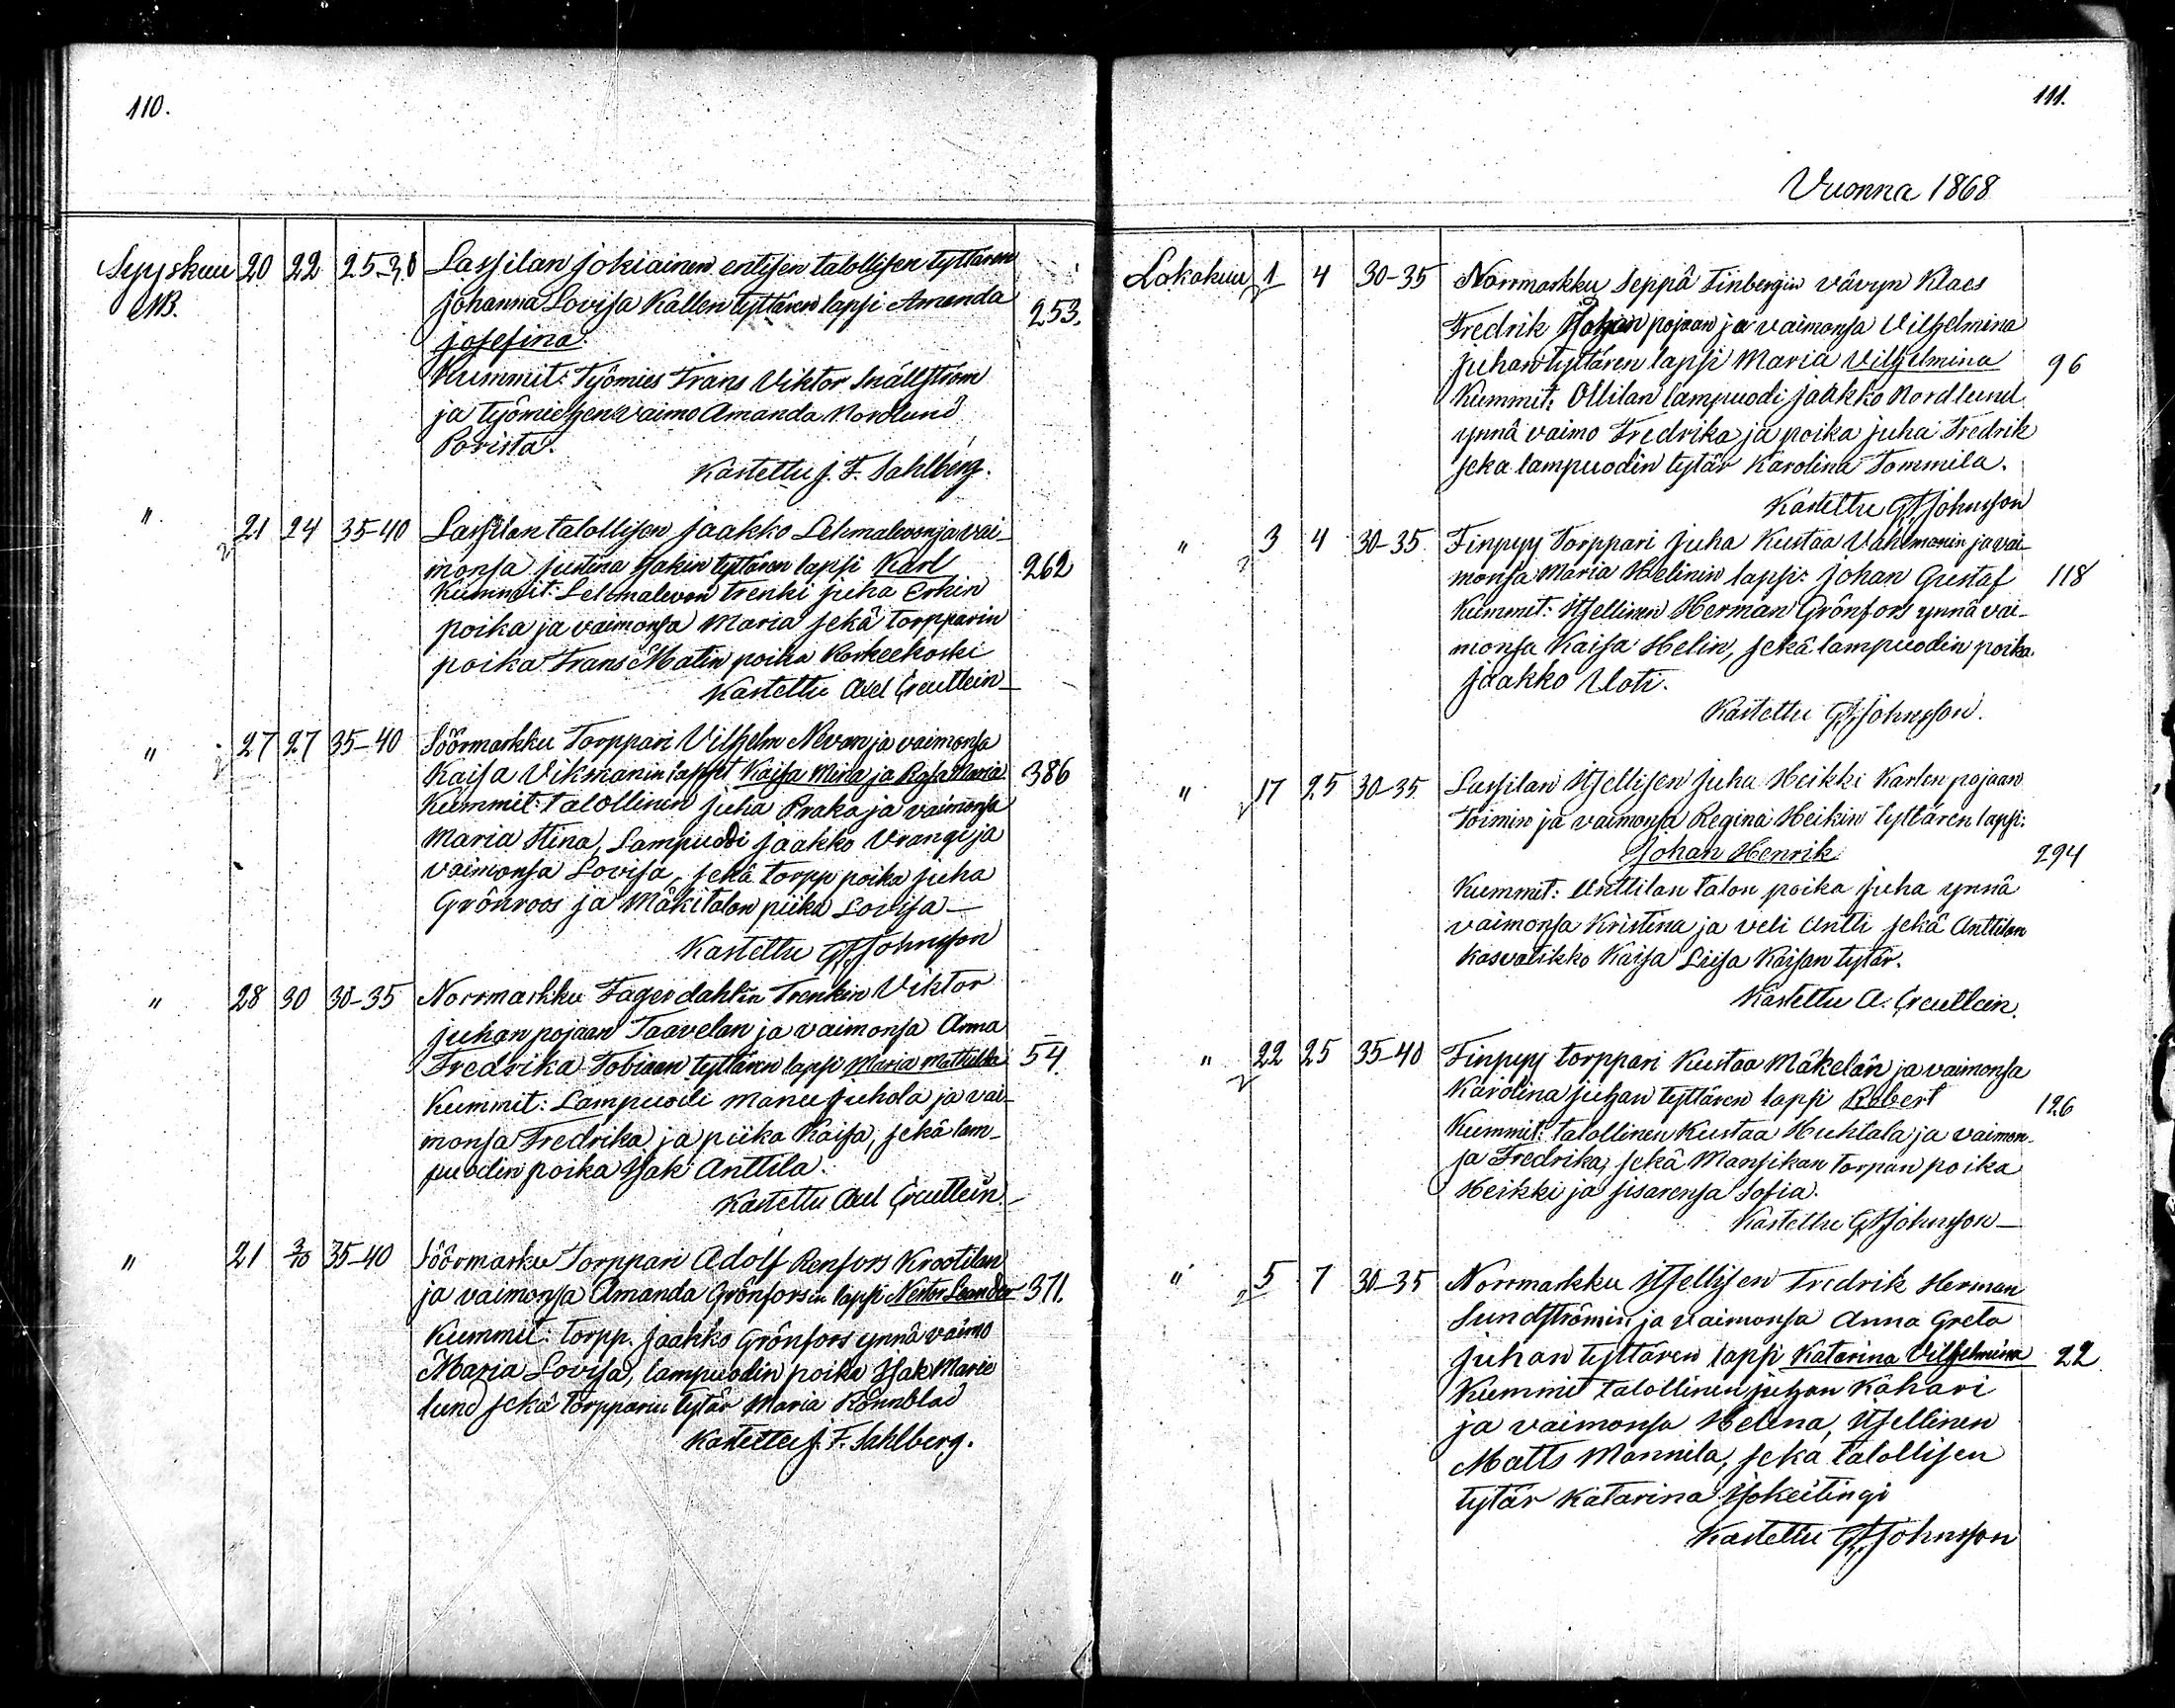 110.
Syyskuu 20 22 25-30 Lassilan jokiainen entisen talollisen tyttären
NB. Johanna Lovisa Kallen tyttären lapsi Amanda 253.
Josefina.
Kummit: Työmies Frans Viktor Snällström
ja työmiehen vaimo Amanda Nordlund
Porista.
Kastettu J. F. Sahlberg.
" 21 24 35-40 Lassilan talollisen Jaakko Lehmalevon ja vai-
monsa Justina Isakin tyttären lapsi Karl 262
Kummit: Lehmalevon trenki Juha Erkin
poika ja vaimonsa Maria sekä torpparin
poika Frans Matin poika Korkeekoski
Kastettu Axel Creutlein
" 27 27 35-40 Söörmarkku Torppari Vilhelm Nevan ja vaimonsa
Kaisa Vikmanin lapset Kaisa Mina ja Rosa Maria 386
Kummit: talollinen Juha Praka ja vaimonsa
Maria Stina, Lampuodi Jaakko Vrangi ja
vaimonsa Lovisa, sekä torpp poika Juha
Grönroos ja Mäkitalon piika Lovisa—
Kastettu G Johnsson
" 28 30 30-35 Norrmarkku Fagerdahlin Trenkin Viktor
Juhan pojaan Taavelan ja vaimonsa Anna
Fredrika Tobiaan tyttären lapsi Maria Mathilda 54.
Kummit: Lampuodi Manu Juhola ja vai-
monsa Fredrika ja piika Kaisa, sekä lam-
puodin poika Isak Anttila.
Kastettu Axel Creutlein.
" 21 3/10 35-40 Söörmarku Torppari Adolf Renfors Krootilan
ja vaimonsa Amanda Grönforsin lapsi Nestor Leander 371.
Kummit: torpp. Jaakko Grönfors ynnä vaimo
Maria Lovisa, lampuodin poika Isak Marie
lund sekä torpparin tytär Maria Rönnblad
Kastettu J. F. Sahlberg.
111.
Vuonna 1868
Lokakuu 1 4 30-35 Norrmarkku Seppä Finbergin vävyn Klaes
Fredrik Johan pojaan ja vaimonsa Vilhelmina
Juhan tyttären lapsi Maria Vilhelmina 96
Kummit: Ollilan lampuodi Jaakko Nordlund
ynnä vaimo Fredrika ja poika Juha Fredrik
seka lampuodin tytär Karolina Tommila.
Kastettu G Johnsson
" 3 4 30-35 Finpyy Torppari Juha Kustaa Vahlmanin ja vai-
monsa Maria Helinin lapsi: Johan Gustaf 118
Kummit: Itsellinen Herman Grönfors ynnä vai-
monsa Kaisa Helin, sekä lampuodin poika
Jaakko Uoti.
Kastettu G Johnsson.
" 17 25 30-35 Lassilan Itsellisen Juha Heikki Karlen pojaan
Toimin ja vaimonsa Regina Heikin tyttären lapsi:
Johan Henrik 294
Kummit: Anttilan talon poika Juha ynnä
vaimonsa Kristina ja veli Antti sekä Anttilan
kasvatikko Kaisa Liisa Kaisan tytär.
Kastettu A. Creutlein.
" 22 25 35-40 Finpyy torppari Kustaa Mäkelän ja vaimonsa
Karolina Juhan tyttären lapsi Robert 126
Kummit: talollinen Kustaa Huhtala ja vaimon-
sa Fredrika, sekä Mansikan torpan poika
Heikki ja sisarensa Sofia.
Kastettu G Johnsson—
" 5 7 30-35 Norrmarkku Itsellisen Fredrik Herman
Sundströmin ja vaimonsa Anna Greta
Juhan tyttären lapsi Katarina Vilhelmina 22
Kummit talollinen Juhan Kahari
ja vaimonsa Helena, Itsellinen
Matts Mannila, seka talollisen
tytär Katarina Isokeitingi
Kastettu G Johnsson